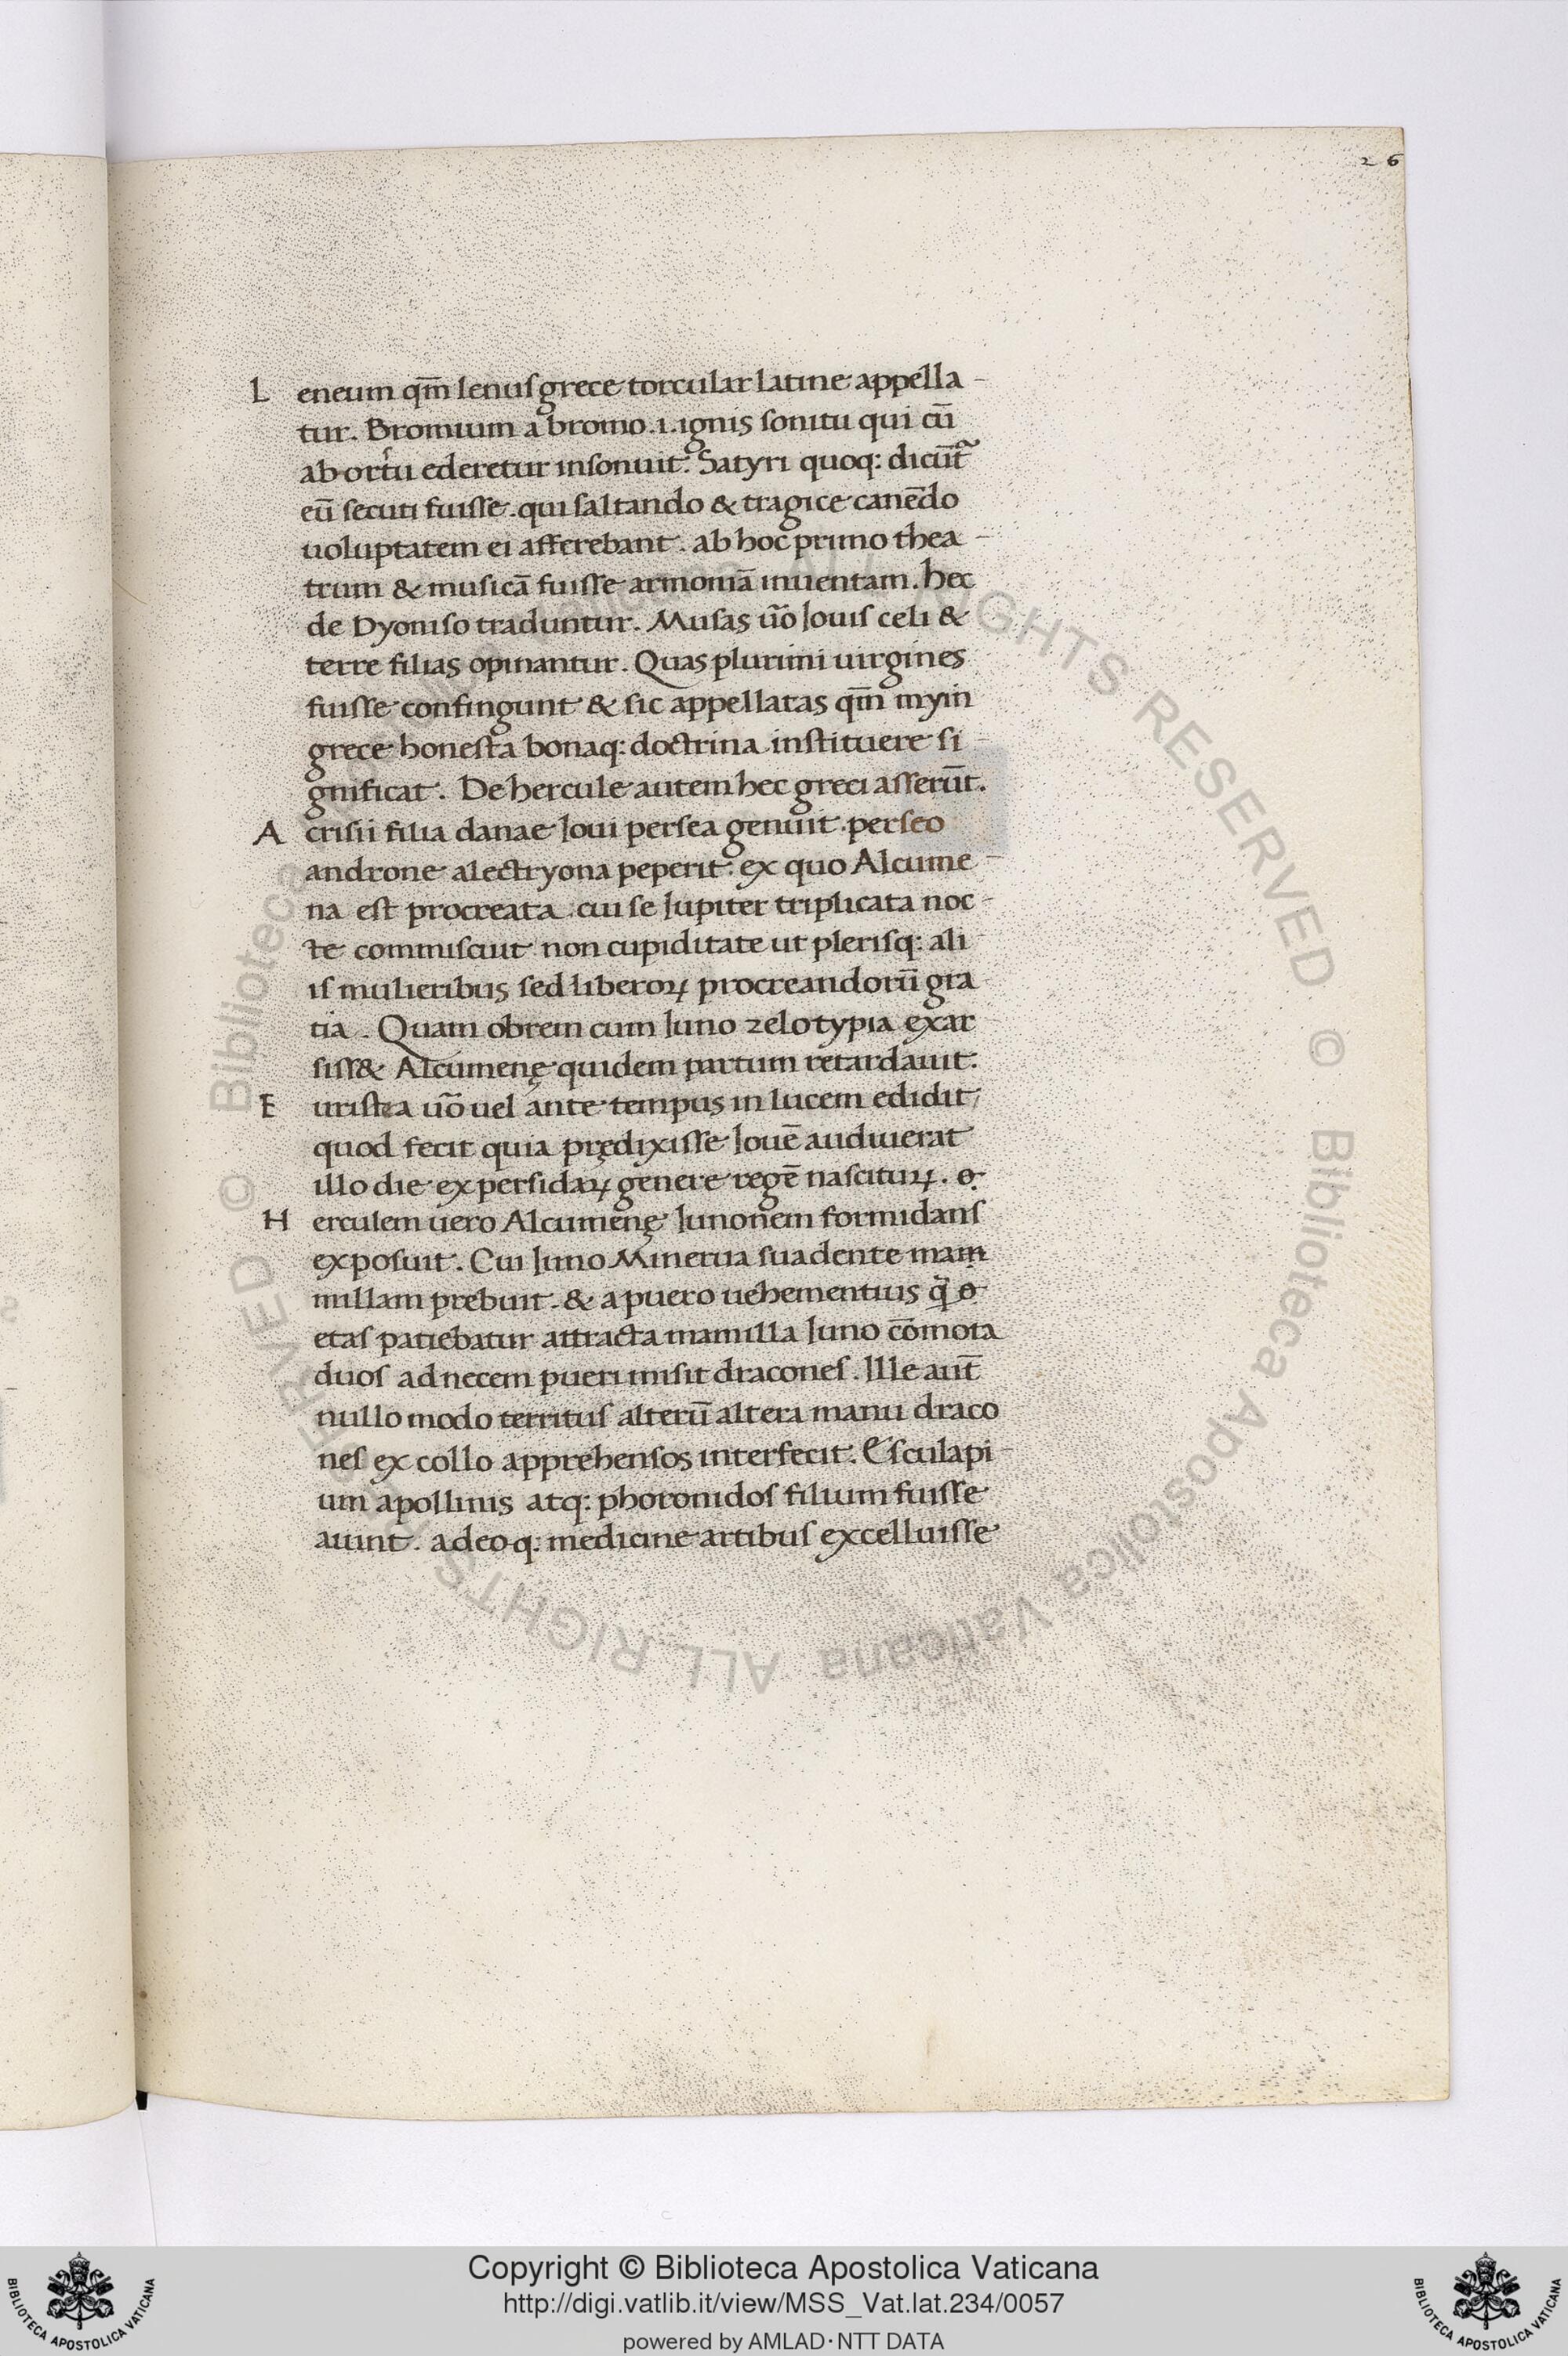 26
L eneum qm̄ lenus grece torcular latine appella-
tur. Bromium a bromo .i. ignis sonitu qui cū
ab ortu ederetur insonuit. Satyri quoq: dicūt
eū secuti fuisse. qui saltando & tragice canēdo
uoluptatem ei afferebant. ab hoc primo thea-
trum & musicā fuisse armoniā inuentam. hec
de Dyoniso traduntur. Musas ūo Iouis celi &
terre filias opinantur. Quas plurimi uirgines
fuisse confingunt & sic appellatas qm̄ myin
grece honesta bonaq: doctrina instituere si-
gnificat. De hercule autem hec greci asserūt.
A crisii filia danae Ioui persea genuit. perseo
androne alectryona peperit. ex quo Alcume-
na est procreata. cui se Iupiter triplicata noc-
te commiscuit non cupiditate ut plerisq: ali-
is mulieribus sed liberoꝝ procreandorū gra-
tia. Quam obrem cum Iuno zelotypia exar-
siss& Alcumenę quidem partum retardauit.
E uristea ūo uel ante tempus in lucem edidit,
quod fecit quia prędixisse Iouē audiuerat
illo die ex persidaꝝ genere regē nascituꝝ.
H erculem uero Alcumenę Iunonem formidans
exposuit. Cui Iuno Minerua suadente mam
millam prebuit. & a puero uehementius q̄
etas patiebatur attracta mamilla Iuno cōmota
duos ad necem pueri misit dracones. Ille aut̄
nullo modo territus alterū altera manu draco
nes ex collo apprehensos interfecit. Esculapi-
um apollinis atq: phoronidos filium fuisse
aiunt. adeoq: medicine artibus excelluisse
Copyright © Biblioteca Apostolica Vaticana
http://digi.vatlib.it/view/MSS_Vat.lat.234/0057
powered by AMLAD·NTT DATA